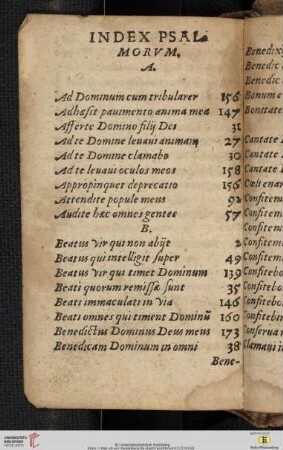 INDEX PSAL
MORVM.
A.
Ad Dominum cum tribularer 156
Adhæsit pauimento anima mea 147
Afferte Domino filij Dei 31
Ad te Domine leuaui animam 27
Ad te Domine clamabo 30
Ad te leuaui oculos meos 158
Appropinquet deprecatio 156
Attendite popule meus 92
Audite hæc omnes gentes 57
B.
Beatus vir qui non abijt 2
Beatus qui intelligit super 49
Beatus vir qui timet Dominum 139
Beati quorum remissæ sunt 35
Beati immaculati in via 146
Beati omnes qui timent Dominũ 160
Benedictus Dominus Deus meus 173
Benedicam Dominum in omni 38
Bene-
Benedixi
Benedic
Benedic
Bonum e
Bonitate
Cantate
Cantate
Cœli enar
Confitem
Confitem
Confitem
Confitem
Confitebo
Confitebo
Confitebo
Confitebo
Confitebo
Confitebin
Conserua
Clamaui in